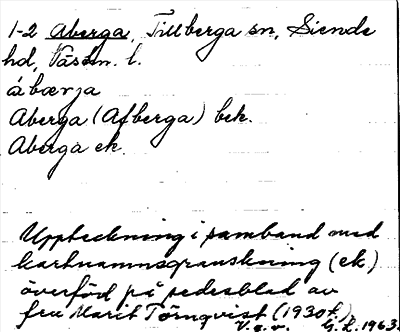 1-2 Aberga, Tillberga sn, Siende
hd, Västm. l.
ábærja
Aberga (Afberga) bek.
Aberga ek.
Uppteckning i samband med
kartnamnsgranskning (ek)
överförd på sedesblad av
fru Marit Törnqvist (1930 f.)
V.s.v. G.L. 1963.